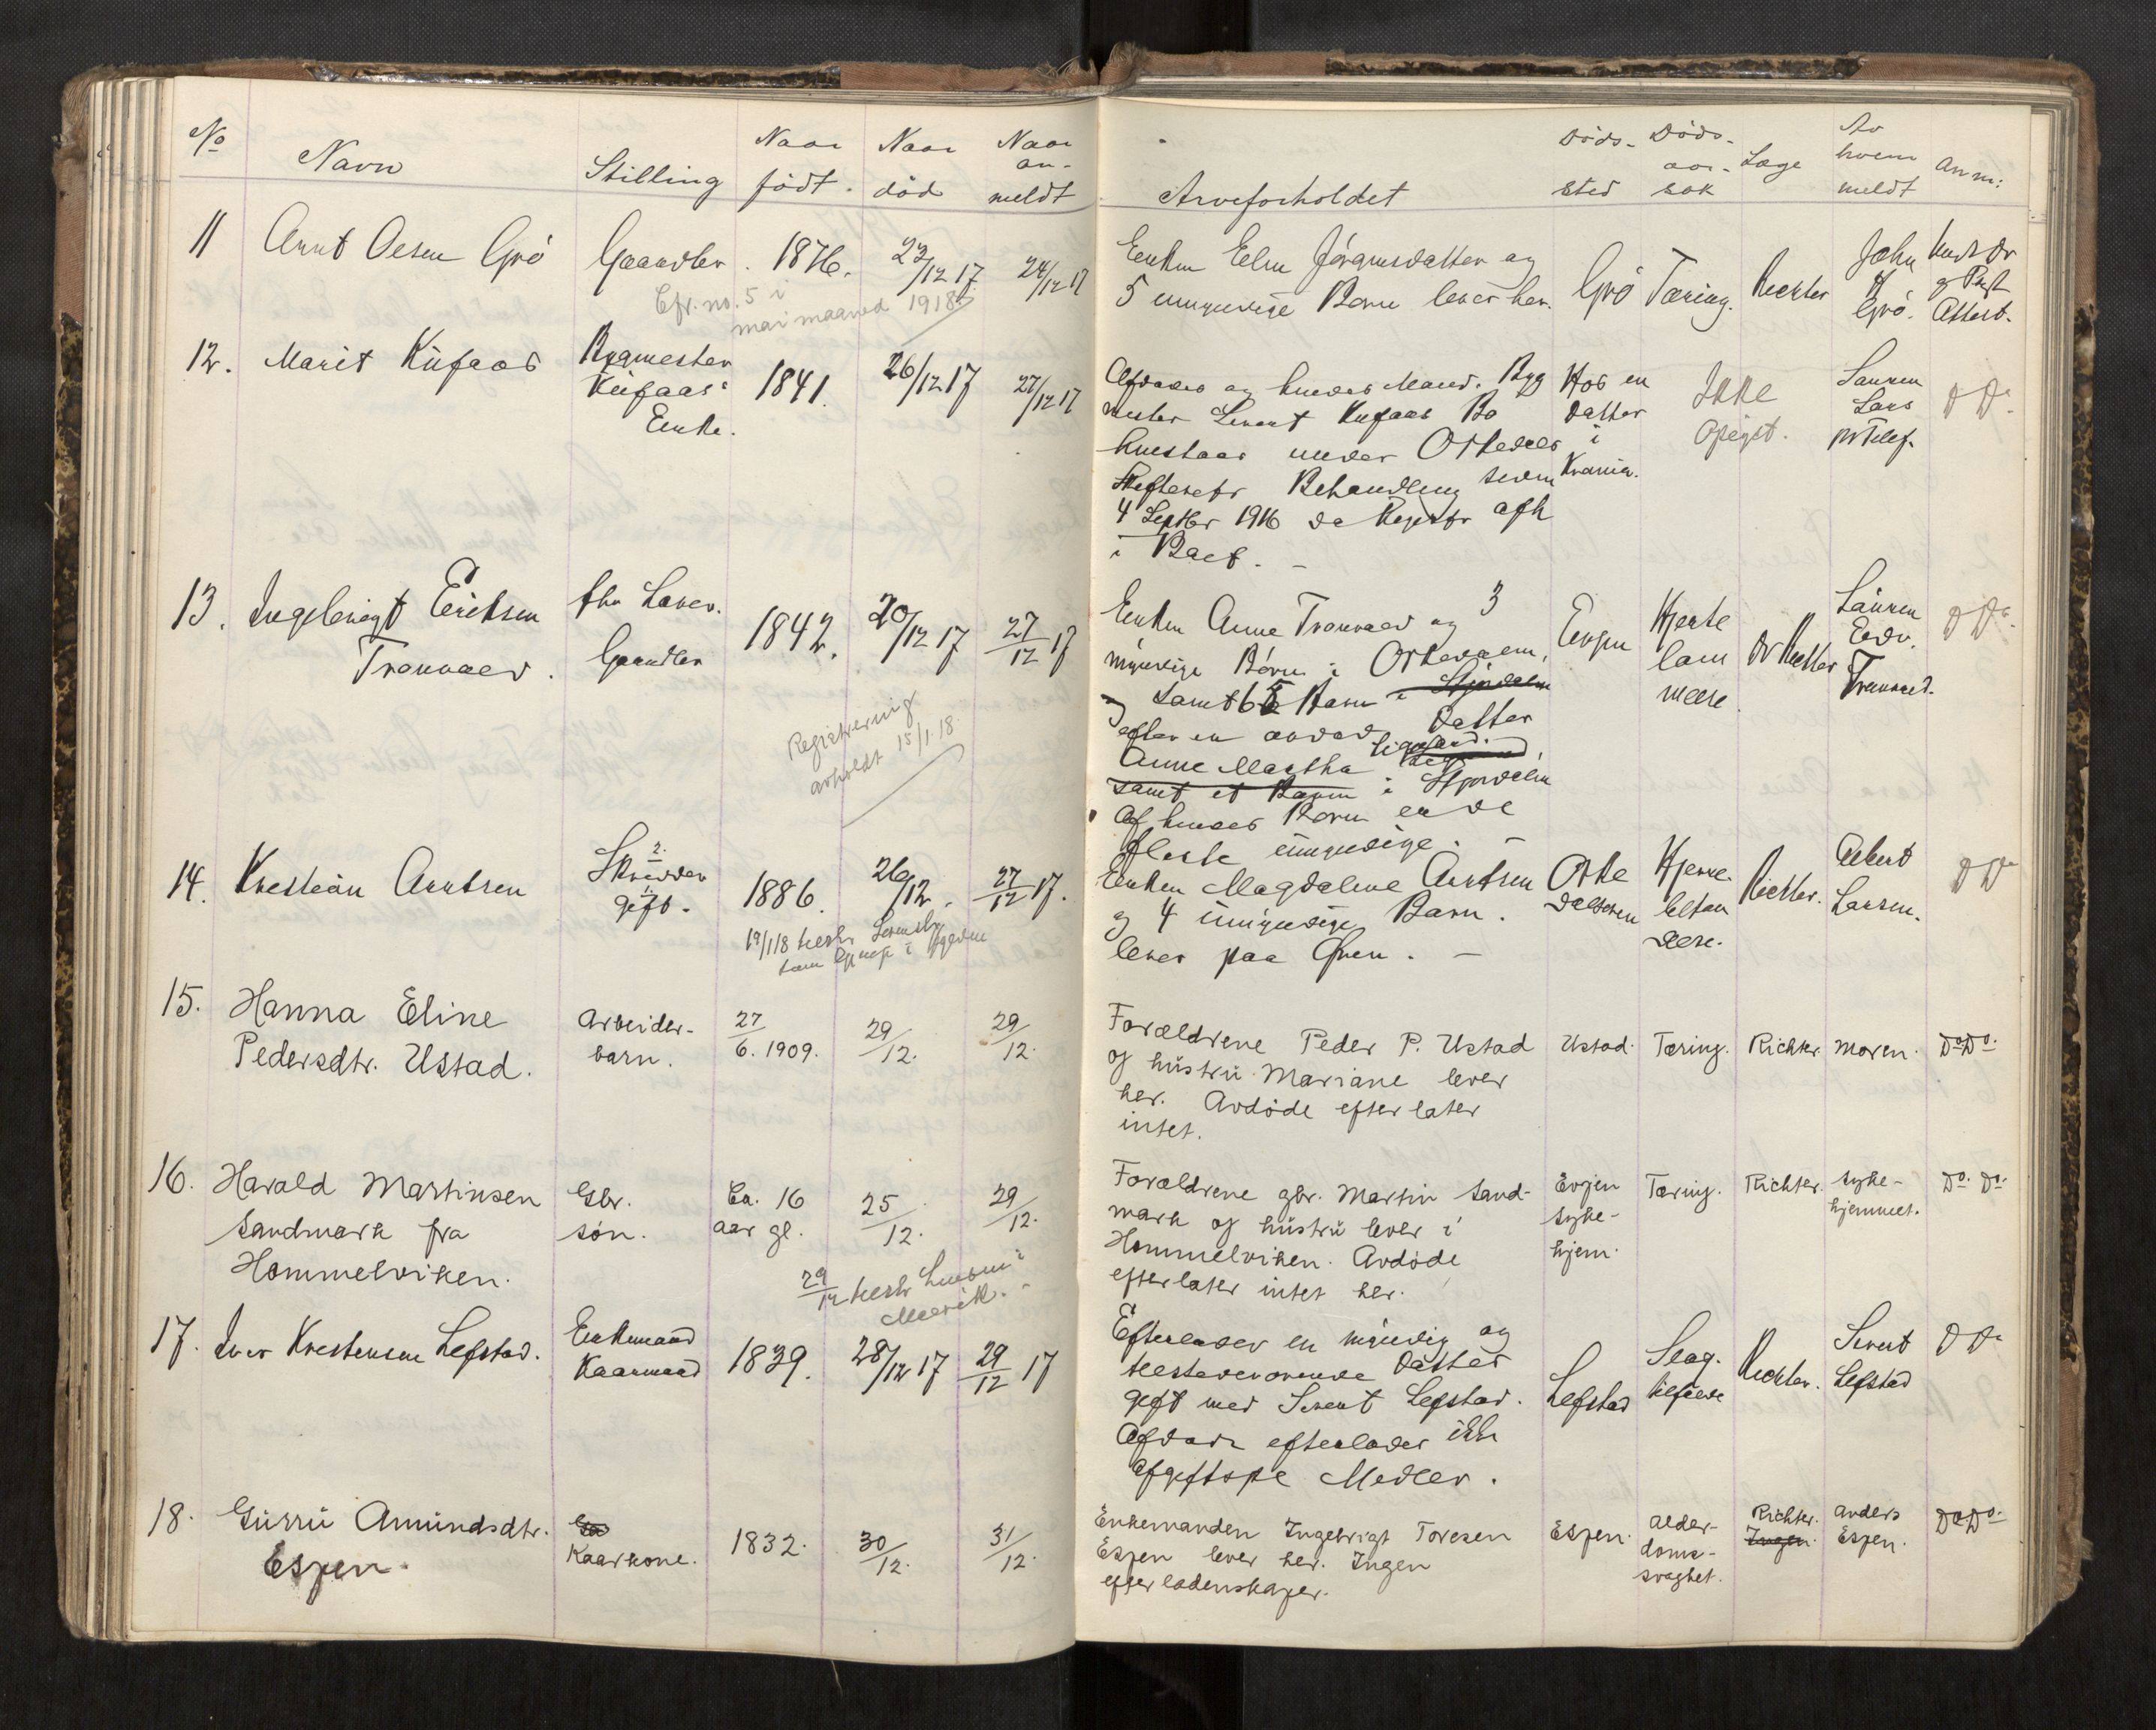 No
Navn
Stilling
Naar
født.
Naar
død
Naar
an-
meldt
Arveforholdet
Døds-
sted
Døds-
aar-
sak
Læge
Av
hvem
meldt
Anm:
11 Arnt Olsen Grø
Gaardbr.
1876.
23/12 17
24/12 17
Efr. no. 5 i
mai maaned 1918
Enken Elen Jørgensdatter og
5 umyndige Børn lever her.
Grø
Tæring.
Richter
John
Grø.
Attest.
12. Marit Küfaas
Bygmester
Küfaas'
Enke.
1841.
26/12 17
27/12 17
Afdødes og hendes Mand, Byg
mester Sivert Kufaas Bo
henstaar under Orkedals
Skifteretss Behandling siden
4 Septbr 1916 da Registr afh
i Boet. -
Hos en
datter
i
Krania.
Ikke
Opgit.
Lars
pr Telef.
D Do
13. Ingebrigt Eriksen
Tranvaed.
Gaardbr
1842.
20/12 17
27/12 17
Registrering
avholdt 15/1. 18.
Enken Anne Tranvaed og 3
myndige Børn i Orkedalen,
og samt 6 Barn i Stjørdalen
efter en avdød Datter
Anne Martha
samt et Barn i Stjørdalen
Af hendes Børn er de
fleste umyndige. -
Evjen
Hjerte
lam
melse
Dr Richter
Edv.
Tranvaed.
D Do
14. Kristian Arntsen
Skrædder
gift.
1886.
26/12.
27/12 17.
Enken Magdalene Arntsen
og 4 umyndige Barn.
lever paa Øren. -
Orke
dalsøren
Hjerne
Richter.
Albert
Larsen.
D Do
15. Hanna Eline
Pedersdtr. Ustad.
Arbeider-
barn.
27/6. 1909.
29/12.
29/12.
Forældrene Peder P. Ustad
og hustru Mariane lever
her. Avdøde efterlater
intet.
Ustad.
Tæring.
Richter.
Moren.
Do Do.
16. Harald Martinsen
Sandmark fra
Hommelviken.
Gbr.
søn.
Ca. 16
aar gl.
25/12.
29/12.
Forældrene gbr. Martin Sand-
mark og hustru lever i
Hommelviken. Avdøde
efterlater intet her.
Evjen
syke-
hjem.
Tæring.
Richter.
Syke-
hjemmet.
Do. Do.
17. Iver Kristensen Lefstad.
Enkemand
Kaarmand
1839.
28/12 17
29/12 17
Efterlader en myndig og
tilstedeværende Datter
gift med Sivert Lefstad.
Afdøde efterlader ikke
afgiftspl Midler.
Lefstad
Slag-
tilfælde
Richter.
Sivert
Lefstad
D Do
18. Gurru Amundsdtr.
Espen.
Kaarkone.
1832.
30/12.
31/12.
Enkemanden Ingebrigt Toresen
Espen lever her. Ingen
efterladenskaper.
Espen.
Alder-
doms-
svaghet.
Richter.
Ingen.
Anders
Espen.
Do Do.